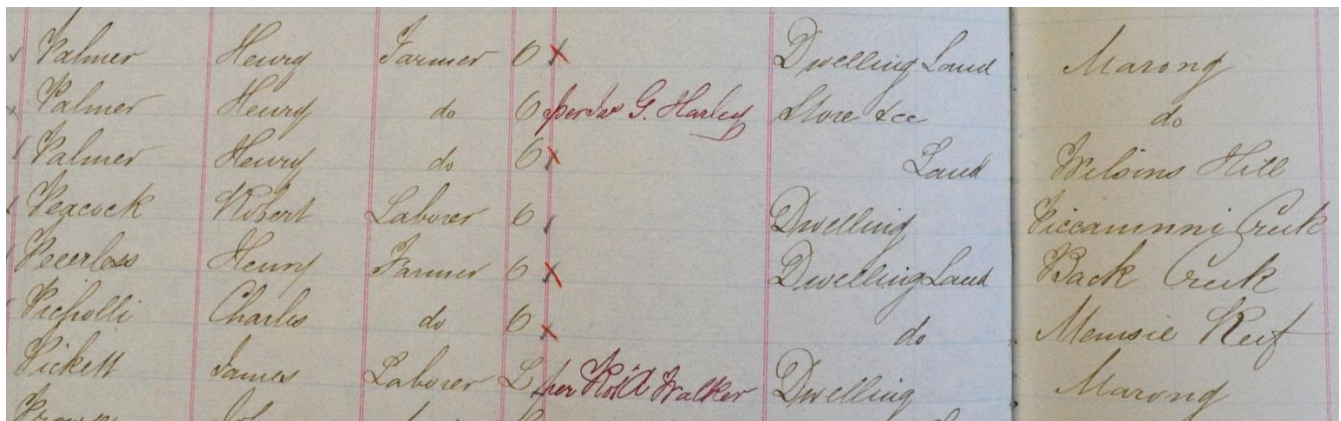 Palmer Henry Farmer O x Dwelling Land Marong
Palmer Henry do O per Jas G. Harley Store &cc do
Palmer Henry do O x Land Wilsons Hill
Peacock Robert Laborer O Dwelling Piccaninni Creek
Peeerless Henry Farmer O x Dwelling Land Back Creek
Picholli Charles do O x do Memsie Reef
Pickett James Laborer L per Rob'd Walker Dwelling Marong